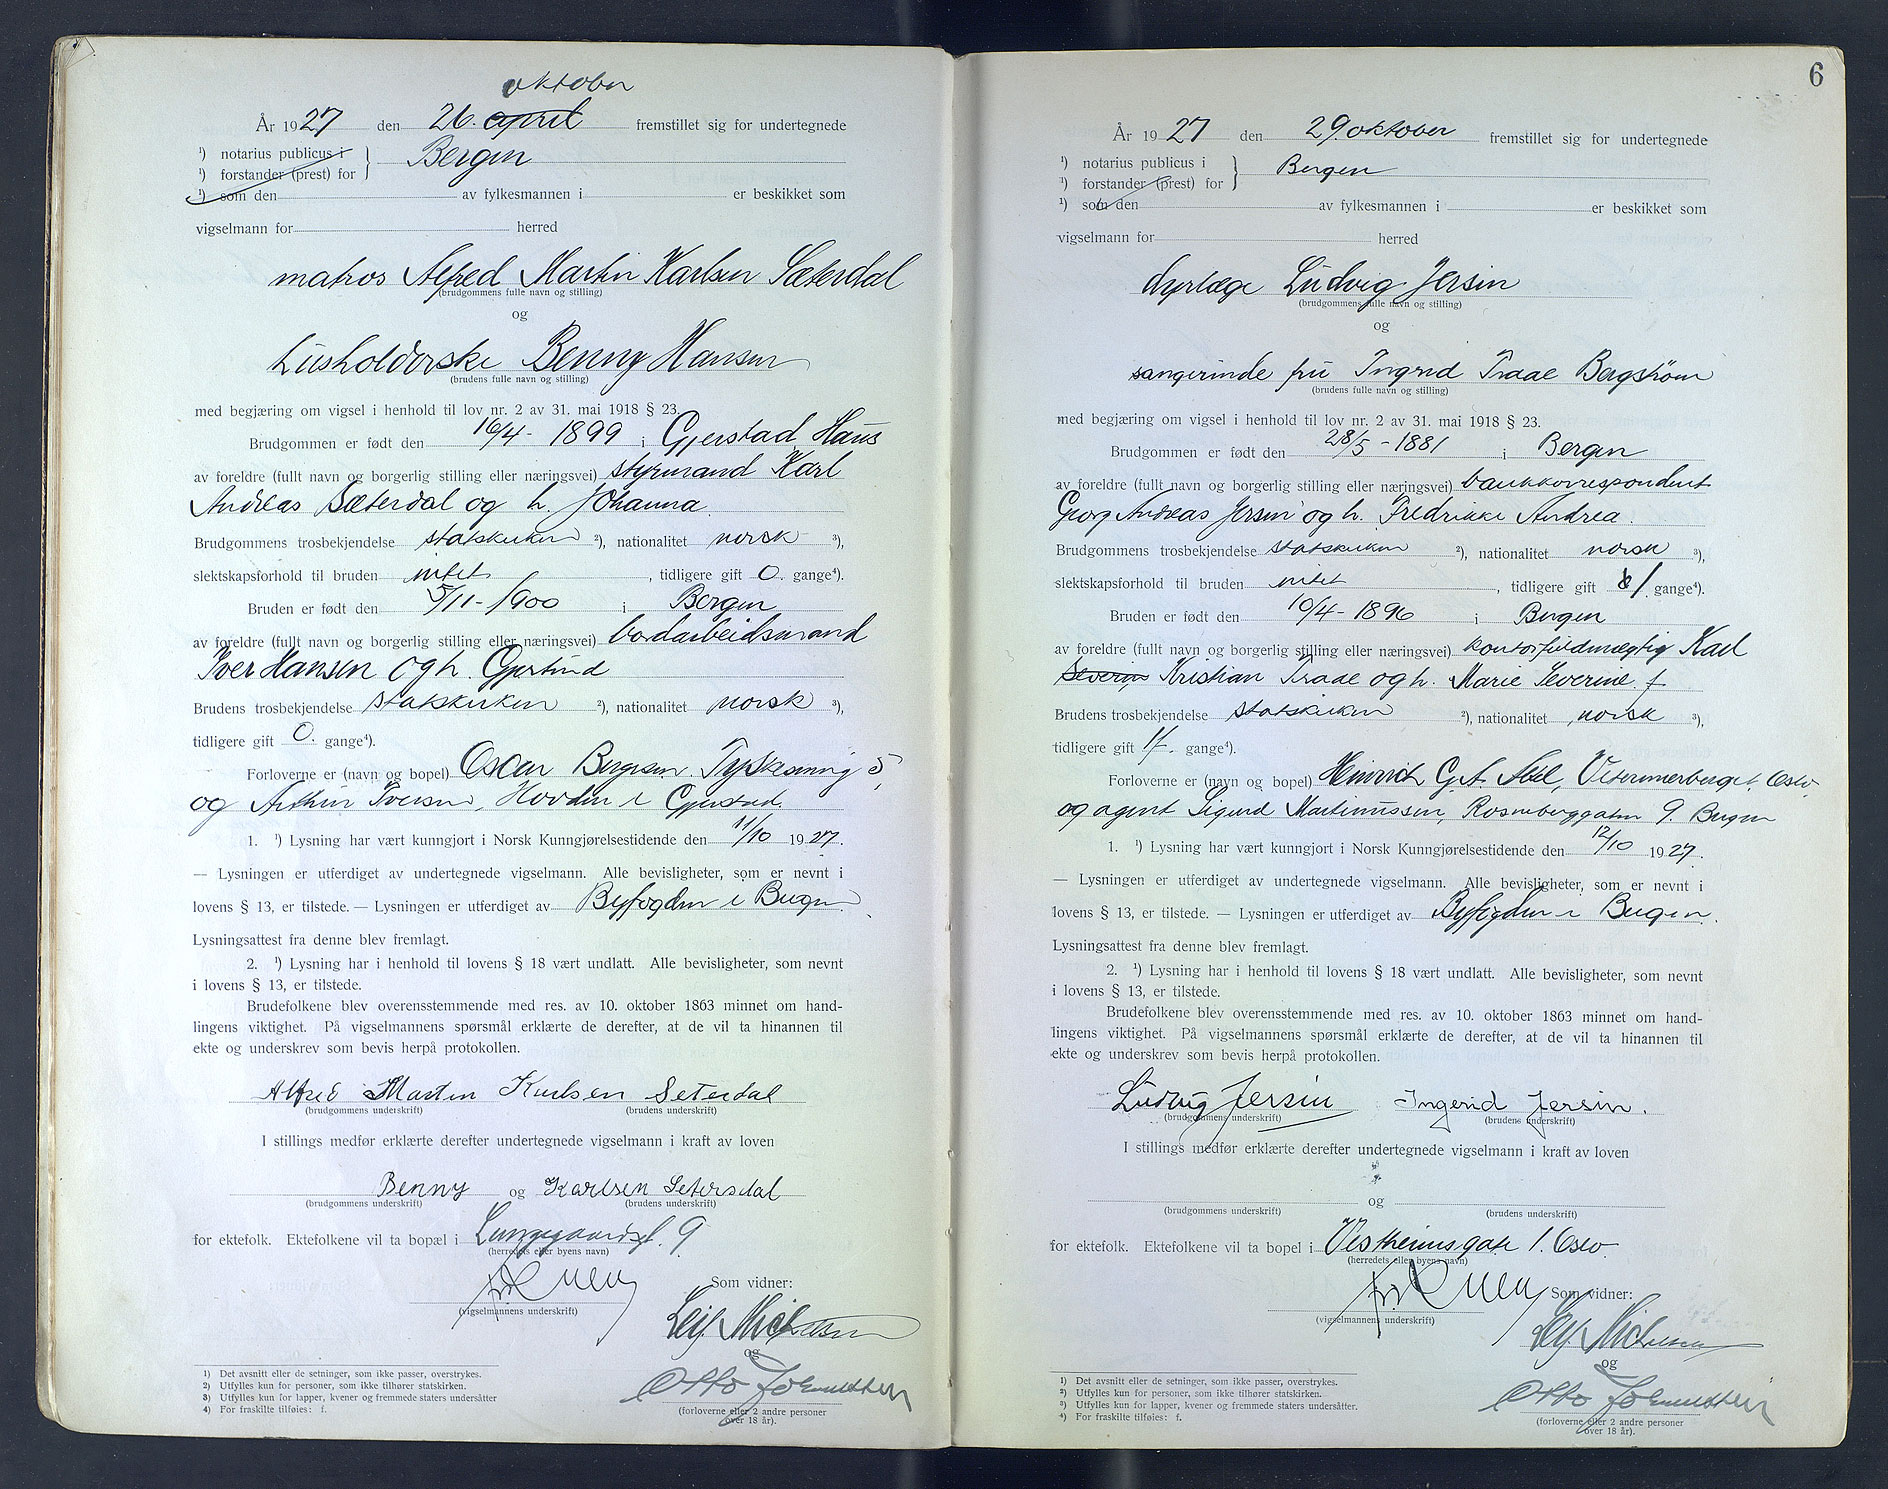 oktober
År 1927 den 26. april fremstillet sig for undertegnede
¹) notarius publicus i
¹) forstander (prest) for } Bergen
¹) som den av fylkesmannen i er beskikket som
vigselmann for herred
matros Alfred Martin Karlsen Sæterdal
(brudgommens fulle navn og stilling)
og
Husholderske Benny Hansen
(brudens fulle navn og stilling)
med begjæring om vigsel i henhold til lov nr. 2 av 31. mai 1918 § 23.
Brudgommen er født den 16/4 - 1899 i Gjerstad, Haus
av foreldre (fullt navn og borgerlig stilling eller næringsvei) styrmand Karl
Andreas Sæterdal og h. Johanna
Brudgommens trosbekjendelse statskirken ²), nationalitet norsk ³),
slektskapsforhold til bruden intet , tidligere gift 0. gange⁴).
Bruden er født den 5/11 - 1900 i Bergen
av foreldre (fullt navn og borgerlig stilling eller næringsvei) bordarbeidsmand
Iver Hansen og h. Gjertrud
Brudens trosbekjendelse statskirken ²), nationalitet norsk ³),
tidligere gift 0. gange⁴).
Forloverne er (navn og bopel) Oscar Bergesen 5,
og Arthur Iversen, Hovden i Gjerstad.
1. ¹) Lysning har vært kunngjort i Norsk Kunngjørelsestidende den 11/10 1927.
— Lysningen er utferdiget av undertegnede vigselmann. Alle bevisligheter, som er nevnt i
lovens § 13, er tilstede. — Lysningen er utferdiget av Byfogden i Bergen.
Lysningsattest fra denne blev fremlagt.
2. ¹) Lysning har i henhold til lovens § 18 vært undlatt. Alle bevisligheter, som nevnt
i lovens § 13, er tilstede.
Brudefolkene blev overensstemmende med res. av 10. oktober 1863 minnet om hand-
lingens viktighet. På vigselmannens spørsmål erklærte de derefter, at de vil ta hinannen til
ekte og underskrev som bevis herpå protokollen.
Alfred Martin Karlsen Seterdal
(brudgommens underskrift) (brudens underskrift)
I stillings medfør erklærte derefter undertegnede vigselmann i kraft av loven
Benny og Karlsen Setersdal
(brudgommens underskrift) (brudens underskrift)
for ektefolk. Ektefolkene vil ta bopæl i Lungegaardsgt. 9
(herredets eller byens navn)
Som vidner:
(vigselmannens underskrift)
Leif Michelsen
og
Otto
(forloverne eller 2 andre personer
over 18 år).
1) Det avsnitt eller de setninger, som ikke passer, overstrykes.
2) Utfylles kun for personer, som ikke tilhører statskirken.
3) Utfylles kun for lapper, kvener og fremmede staters undersåtter
4) For fraskilte tilføies: f.
6
År 1927 den 29. oktober fremstillet sig for undertegnede
¹) notarius publicus i
¹) forstander (prest) for } Bergen
¹) som den av fylkesmannen i er beskikket som
vigselmann for herred
dyrlæge Ludvig Jersin
(brudgommens fulle navn og stilling)
og
sangerinde fru Ingrid Traae Bergstrøm
(brudens fulle navn og stilling)
med begjæring om vigsel i henhold til lov nr. 2 av 31. mai 1918 § 23.
Brudgommen er født den 28/5 - 1881 i Bergen
av foreldre (fullt navn og borgerlig stilling eller næringsvei) bankkorrespondent
Georg Andreas Jersin og h. Fredrikke Andrea.
Brudgommens trosbekjendelse statskirken ²), nationalitet norsk ³),
slektskapsforhold til bruden intet , tidligere gift 1. gange⁴).
Bruden er født den 10/4 - 1896 i Bergen
av foreldre (fullt navn og borgerlig stilling eller næringsvei) kontorfuldmægtig Karl
Severin Kristian Traae og h. Marie Severine. f
Brudens trosbekjendelse statskirken ²), nationalitet norsk ³),
tidligere gift 1f. gange⁴).
Forloverne er (navn og bopel) Heinrich G. A. Oslo,
og agent Sigurd Martinussen, Rosenberggaten 9. Bergen
1. ¹) Lysning har vært kunngjort i Norsk Kunngjørelsestidende den 12/10 1927.
— Lysningen er utferdiget av undertegnede vigselmann. Alle bevisligheter, som er nevnt i
lovens § 13, er tilstede. — Lysningen er utferdiget av Byfogden i Bergen.
Lysningsattest fra denne blev fremlagt.
2. ¹) Lysning har i henhold til lovens § 18 vært undlatt. Alle bevisligheter, som nevnt
i lovens § 13, er tilstede.
Brudefolkene blev overensstemmende med res. av 10. oktober 1863 minnet om hand-
lingens viktighet. På vigselmannens spørsmål erklærte de derefter, at de vil ta hinannen til
ekte og underskrev som bevis herpå protokollen.
Ludvig Jersin Ingerid Jersin.
(brudgommens underskrift) (brudens underskrift)
I stillings medfør erklærte derefter undertegnede vigselmann i kraft av loven
og
(brudgommens underskrift) (brudens underskrift)
for ektefolk. Ektefolkene vil ta bopel i Vestheimsgate 1. Oslo.
(herredets eller byens navn)
Som vidner:
(vigselmannens underskrift)
Leif Michelsen
og
Otto
(forloverne eller 2 andre personer
over 18 år).
1) Det avsnitt eller de setninger, som ikke passer, overstrykes.
2) Utfylles kun for personer, som ikke tilhører statskirken.
3) Utfylles kun for lapper, kvener og fremmede staters undersåtter.
4) For fraskilte tilføies: f.